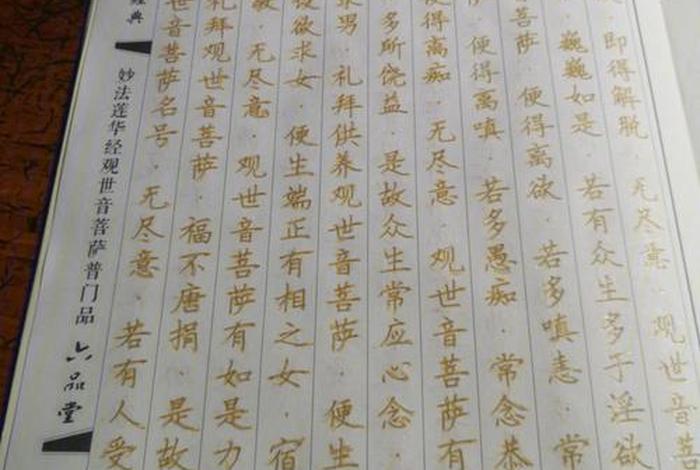 即得解脱·无尽意·观世音菩
巍巍如是·若有众生多于淫欲
菩萨·便得离欲·若多嗔恚·常
便得离嗔·若多愚痴·常念恭
便得离痴·无尽意·观世音菩萨有
多所饶益·是故众生常应心念·
求男·礼拜供养观世音菩萨·便生
设欲求女·便生端正有相之女·宿
无尽意·观世音菩萨有如是力
礼拜观世音菩萨·福不唐捐·是故
世音菩萨名号·无尽意·若有人受
典
妙法莲华经观世音菩萨普门品
六品堂